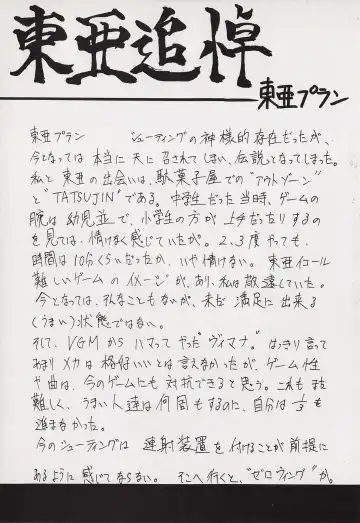 東亜追悼
東亜プラン
東亜プラン　　シューティングの神様的存在だったが、
今となっては本当に天に召されてしまい、伝説となってしまった。
私と東亜の出会いは、駄菓子屋での"アウトゾーン"
と"TATSUJIN"である。中学生だった当時、ゲームの
腕は幼児並で、小学生の方が上手だったりするの
を見ては、情けなく感じていたが。2、3度やっても、
時間は10分くらいだったか、いや情けない。東亜イコール
難しいゲームのイメージがあり、私は敬遠していた。
今となっては、そんなこともないが、未だ満足に出来る
(うまい)状態ではない。
そして、VGMからハマってやった"ヴィマナ"。はっきり言って
あまりメカは格好いいとは言えなかったが、ゲーム性
や曲は、今のゲームにも対抗できると思う。これもまた
難しく、うまい人達は何周もするのに、自分は1/3も
進まなかった。
今のシューティングは連射装置を付けることが前提に
あるように感じてならない。そこへ行くと、"ゼロウィング"が。